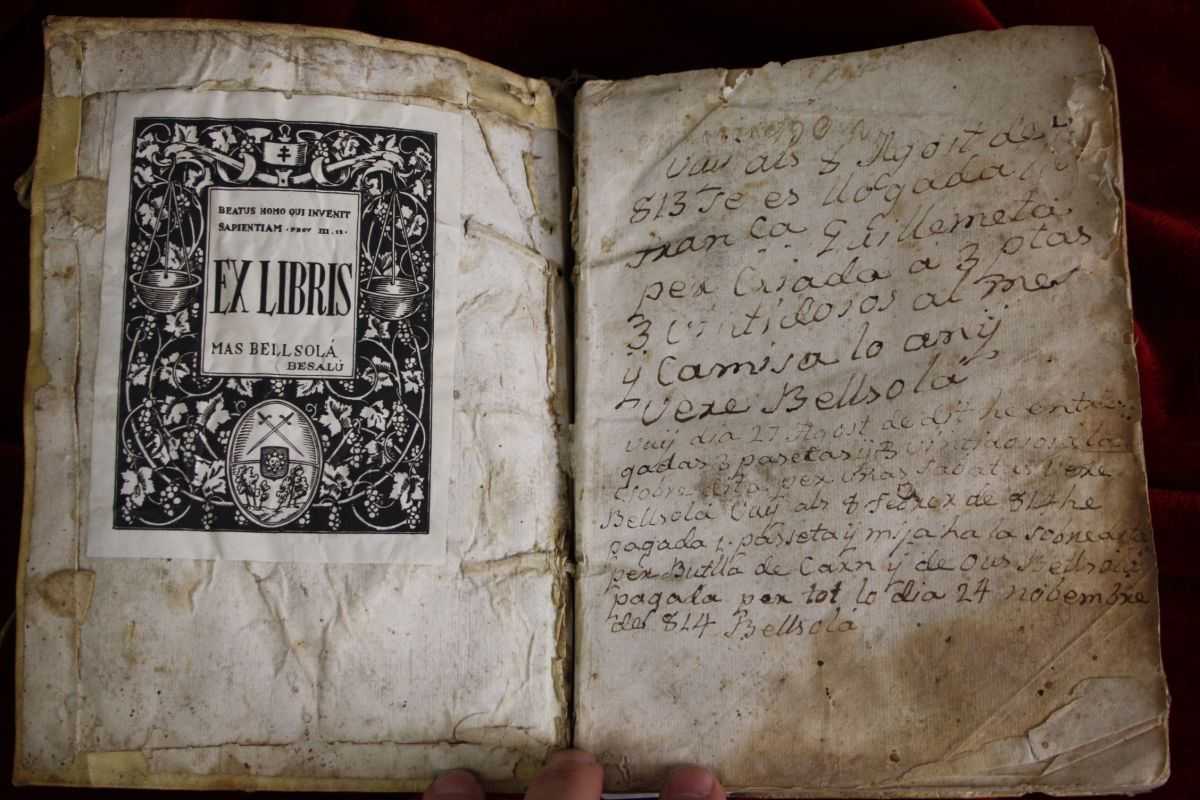 BEATUS HOMO QUI INVENIT
SAPIENTIAM · PROV III. 13 ·
EX LIBRIS
MAS BELLSOLÁ
BESALÚ
Vuy als 8 Agost de
813 Je es llogada
Franca
per Criada a 3
3 Vintidosos al mes
y Camisa lo any
Vere Bellsolá
Vuy dia 27 Agost de dit he entre
gadas 3 pasetas y 3 vintidosos a la
sobre dita per unas Sabatas Vere
Bellsolá Vuy als 8 Febrer de 814 he
pagada 1. passeta y mija ha la
per Butlla de Carn y de Ous Bellsolá
pagada per tot lo dia 24 nobembre
de 814 Bellsolá